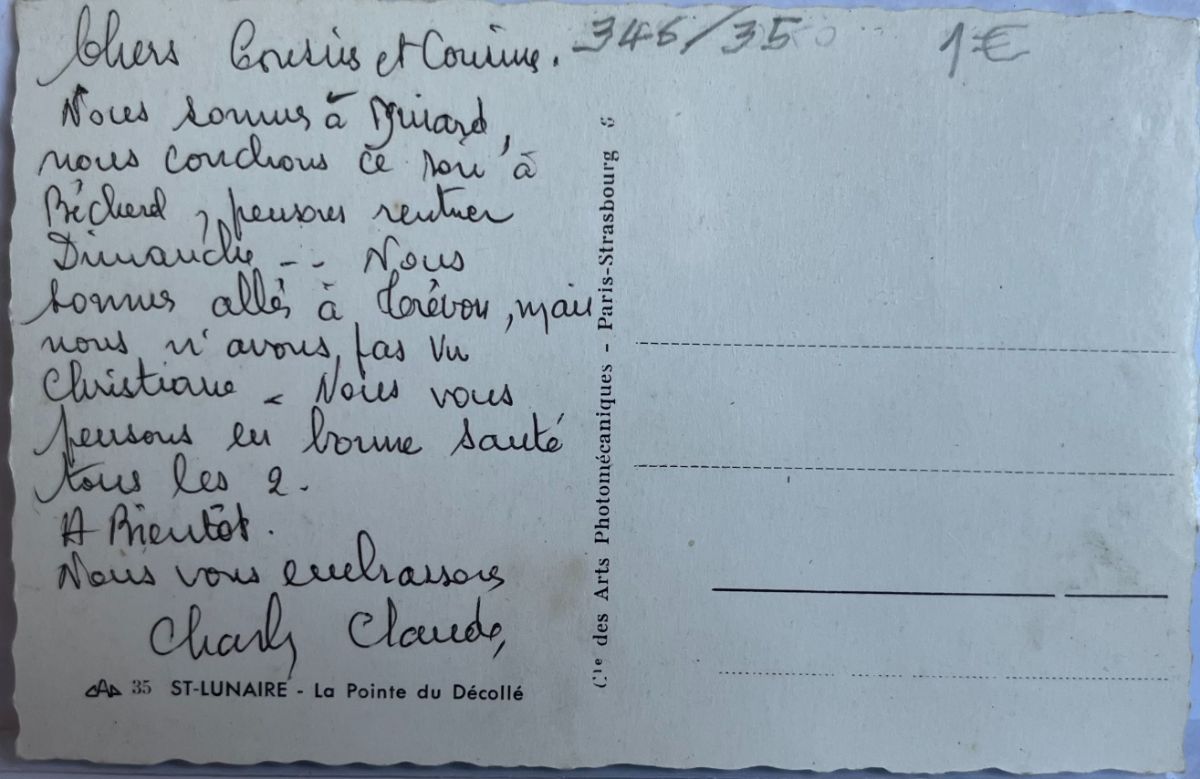 Chers Cousins et Cousine.
Nous sommes à Dinard,
nous couchons ce soir à
Bécherel, pensons rentrer
Dimanche -- Nous
sommes allés à Trévou, mais
nous n'avons pas vu
Christiane - Nous vous
pensons en bonne santé
tous les 2.
A Bientôt.
Nous vous embrassons
Charly Claude,
35 ST-LUNAIRE - La Pointe du Décollé
Cie des Arts Photomécaniques - Paris-Strasbourg
346/35
1€